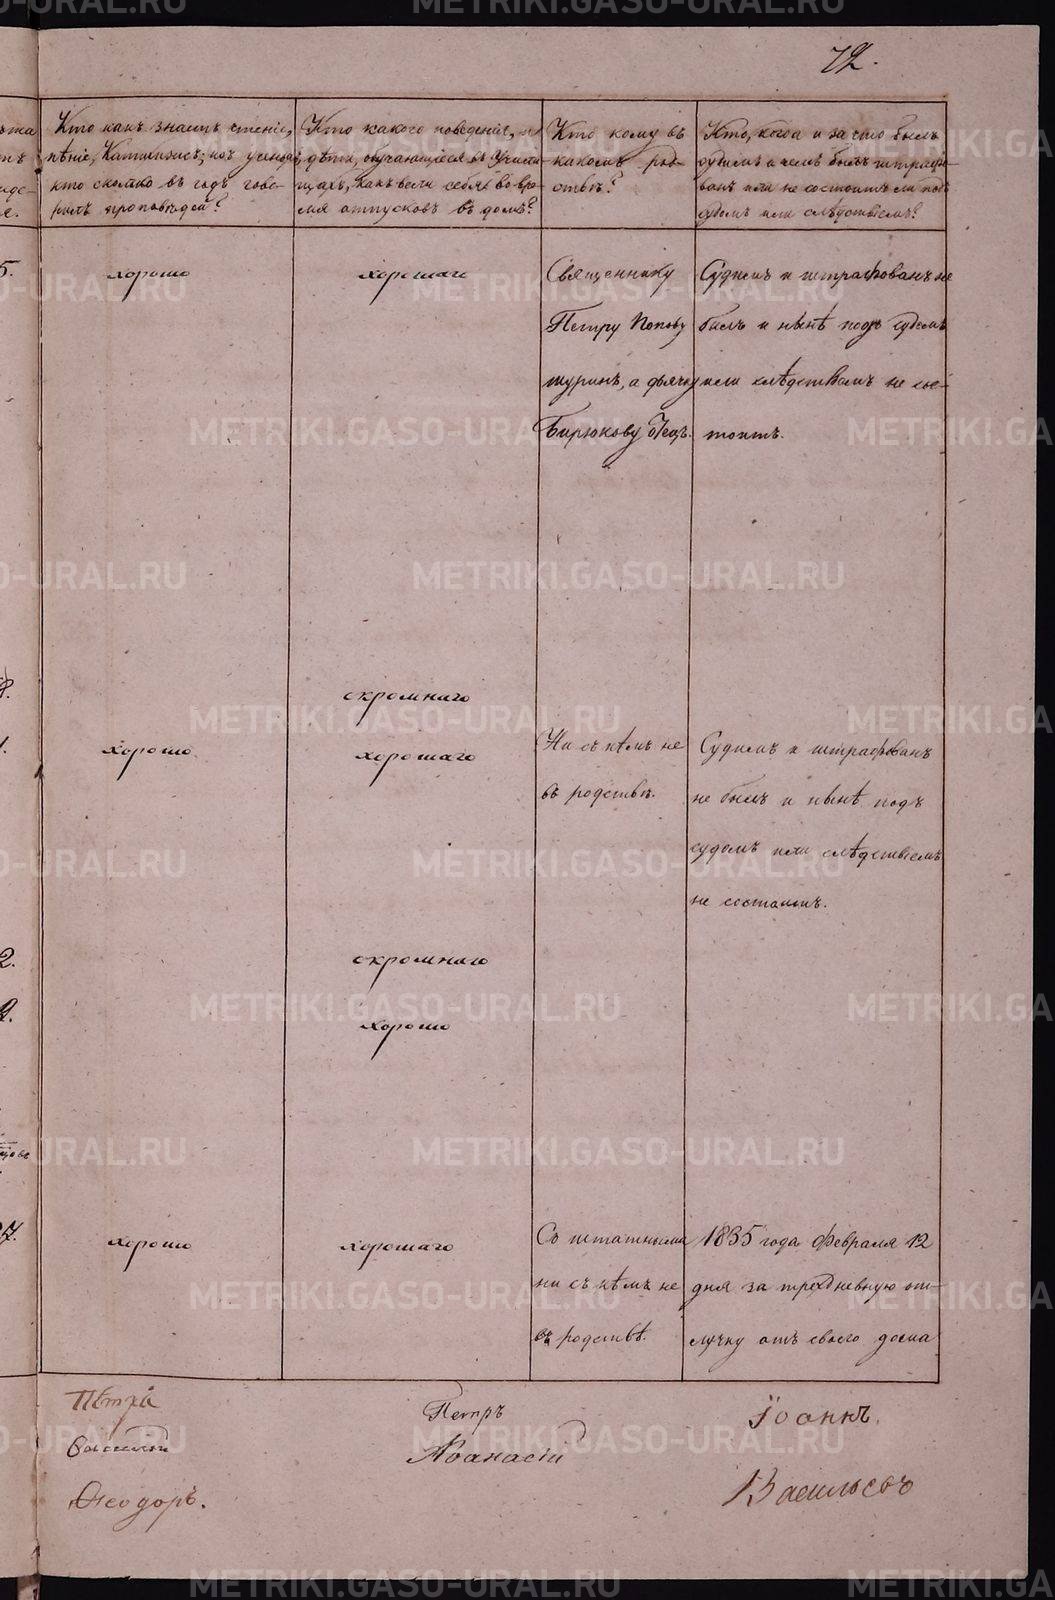 72.
Кто какъ знаетъ чтеніе,
пѣніе, Катихизисъ;
кто сколько въ годъ гово-
рилъ проповѣдей?
Кто какого поведенія, и
дѣти, обучающіеся въ Учили-
щахъ, какъ вели себя во вре-
мя отпусковъ въ домъ?
Кто кому въ
какомъ род-
ствѣ?
Кто, когда и за что былъ
судимъ и чемъ былъ штрафо-
ванъ или не состоитъ ли подъ
судомъ или слѣдствіемъ?
5.
хорошо
хорошаго
Священнику
Петру Попову
шуринъ, а дьячку
Бирюкову
Судимъ и штрафованъ не
былъ и нынѣ подъ судомъ
или слѣдствіемъ не сос-
тоитъ.
скромнаго
хорошо
хорошаго
Ни съ кѣмъ не
въ родствѣ.
Судимъ и штрафованъ
не былъ и нынѣ подъ
судомъ или слѣдствіемъ
не состоитъ.
2.
скромнаго
хорошо
7.
хорошо
хорошаго
Съ штатными
ни съ кѣмъ не
въ родствѣ.
1835 года Февраля 12
дня за трехдневную от-
лучку отъ своего дома
Петръ
Аѳанасій
Іоаннъ.
Васильевъ
Василій
Ѳеодоръ.
METRIKI.GASO-URAL.RU